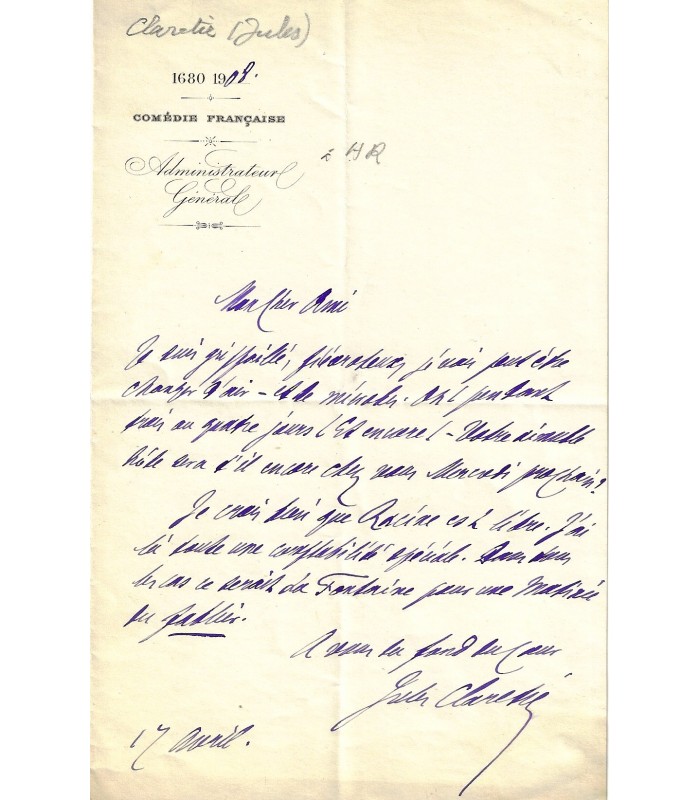 Claretie (Jules)
1680 1908.
COMÉDIE FRANÇAISE
Administrateur
Général
à HR
Mon cher Ami
Je suis grippaillé, je vais peut être
changer d'air – et de . Oh! pendant
trois ou quatre jours! Et encore! – Votre
sera t'il encore chez vous Mercredi prochain?
Je crois bien que Racine est libre. J'ai
là toute une comptabilité spéciale. Dans tous
les cas ce serait La Fontaine pour une Matinée
du fablier.
A vous du fond du Cœur
Jules Claretie
17 avril.